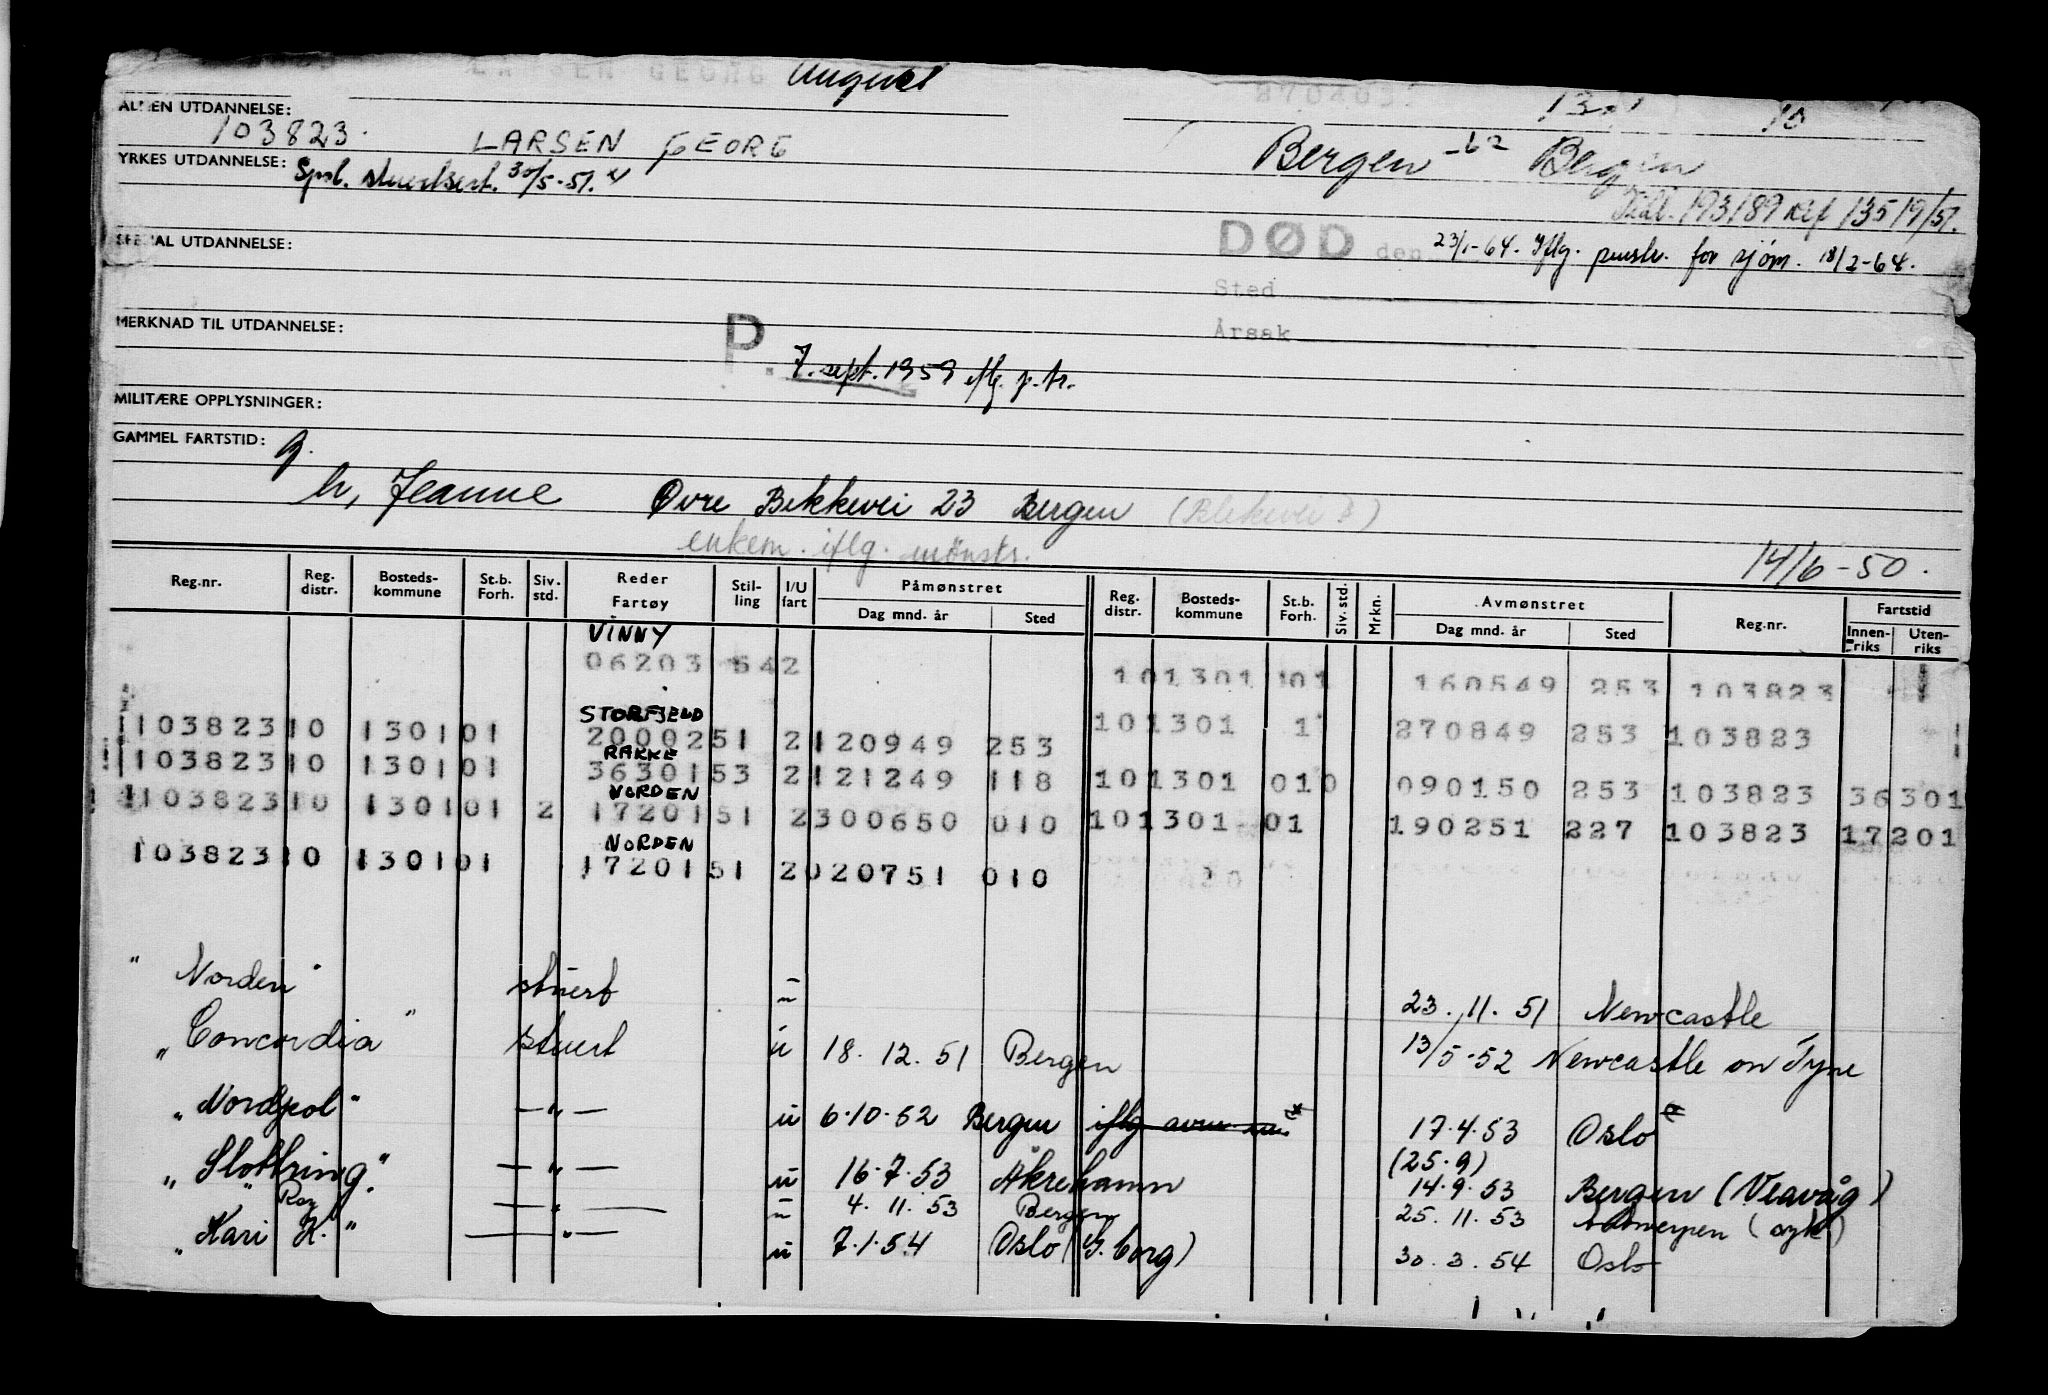 LARSEN GEORG August 870403
ALMEN UTDANNELSE:
103823. LARSEN GEORG Bergen -62 Bergen
YRKES UTDANNELSE: Spsl. stuertsert. 30/5-51.
Tidl. 193189 krf 13519/51.
SPESIAL UTDANNELSE: DØD den 23/1-64. Iflg. penstr. for sjøm. 18/2-64.
Sted
Årsak
MERKNAD TIL UTDANNELSE: P.
7. sept. 1959 iflg. p.tr.
MILITÆRE OPPLYSNINGER:
GAMMEL FARTSTID: g.
h, Jeanne Øvre Bekkevei 23 Bergen (Blekevei ?)
enkem. iflg. mønstr. 14/6-50.
Reg.nr. Reg. distr. Bosteds-kommune St.b. Forh. Siv. std. Reder Fartøy Stil-ling I/U fart Påmønstret Dag mnd. år Sted Reg. distr. Bosteds-kommune St.b. Forh. Siv. std. Mrkn. Avmønstret Dag mnd. år Sted Reg.nr. Fartstid Innen-riks Uten-riks
VINNY
06203 542 101301 101 160549 253 103823
STORFJELD
103823 10 1301 01 20002 51 2 120949 253 101301 1 270849 253 103823
RAKKE
103823 10 1301 01 36301 53 2 121249 118 101301 010 090150 253 103823 36301
NORDEN
103823 10 1301 01 2 17201 51 2 300650 010 101301 01 190251 227 103823 17201
NORDEN
103823 10 1301 01 17201 51 2 020751 010
"Norden" stuert u 23.11.51 Newcastle
"Concordia" stuert u 18.12.51 Bergen 13/5-52 Newcastle on Tyne
"Nordpol" —"— u 6.10.52 Bergen iflg 17.4.53 Oslo
(25.9)
"Slottring" —"— u 16.7.53 Åkrehamn 14.9.53 Bergen (Veavåg)
" Roy —"— u 4.11.53 Bergen 25.11.53 Antwerpen (syk)
"Kari K." —"— u 7.1.54 Oslo (G.borg) 30.3.54 Oslo